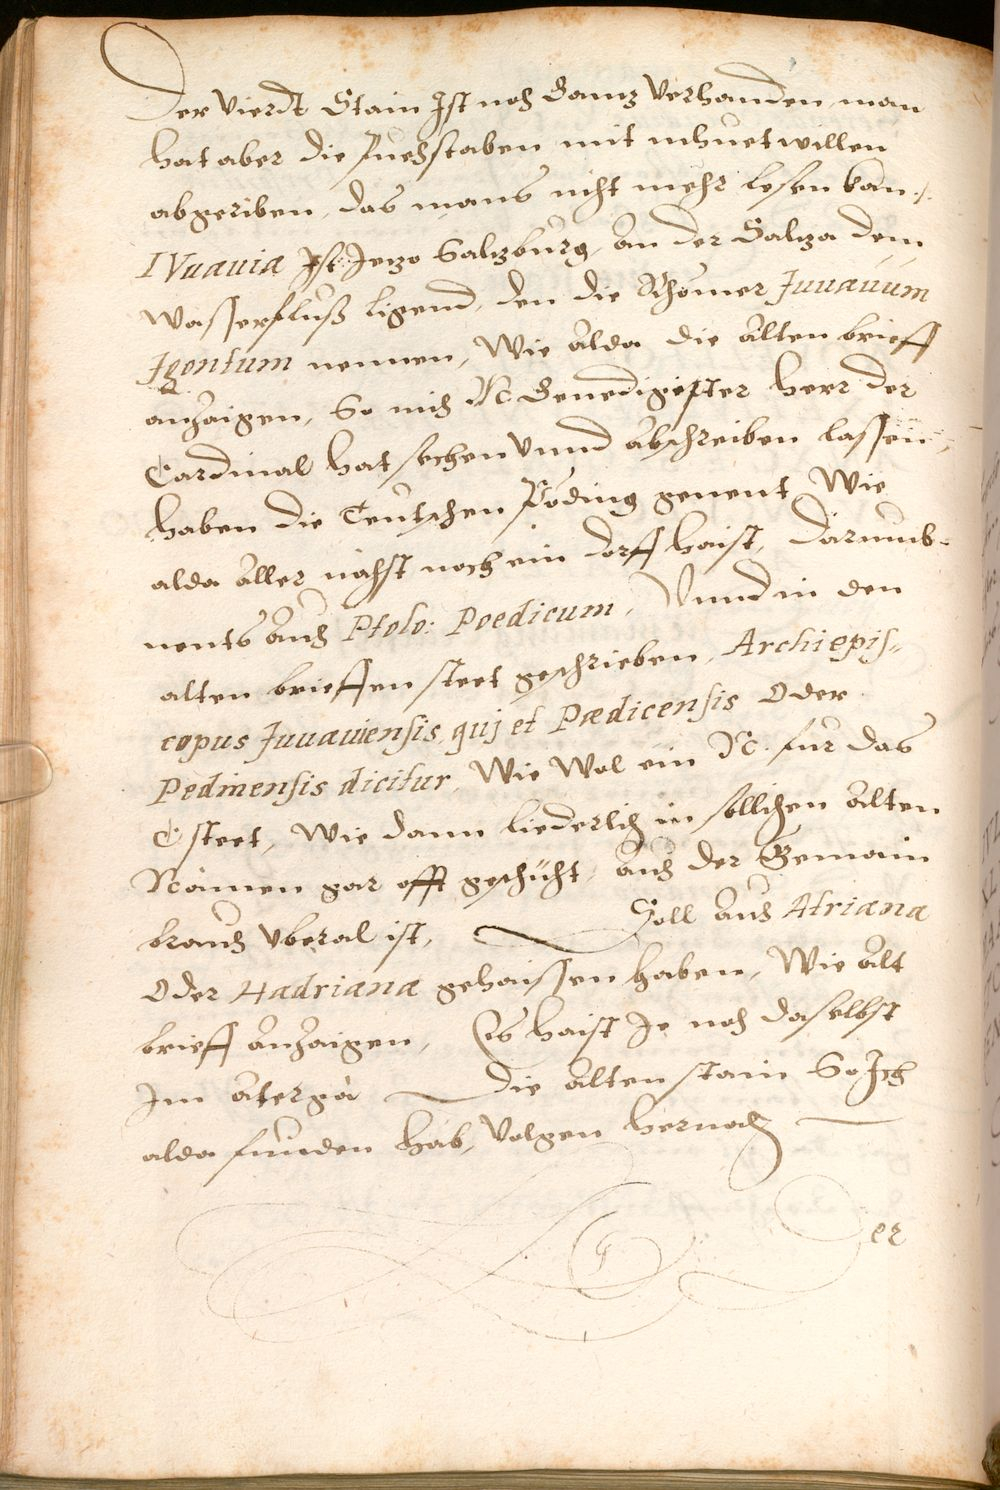 Der vierdt Stain Ist noch Gantz verhanden, man
hat aber die Puechstaben mit muetwillen
abgeriben, das mans nicht mehr lesen kan.
IVuauia Ist Jetzo Saltzburg, an der Saltza dem
wasserfluß ligend, den die Rhömer Juuauium
Igontum nennen, Wie alda die alten brieff
anzaigen, So mich N. Genedigister herr der
Cardinal hat sechen vnnd abschreiben lassen,
haben die Teutschen Pöding genent, Wie
alda aller nächst noch ein dorff haist, darumb
nents auch Ptolo: Poedicum, Vnnd in den
alten brieffen steet geschrieben, Archiepis-
copus Juuauiensis, quj et Pædicensis Oder
Pedinensis dicitur, Wie Wol ein N. fur das
C steet, Wie dann liederlich in sollichen alten
Namen gar offt geschicht, auch der Gemain
brauch vberal ist, Soll auch Atriana
Oder Hadriana gehaissen haben, Wie alt
brieff anzaigen, Es haist Je noch daselbst
Im atergä Die alten stain So Ich
alda funden hab, Volgen hernach
Der